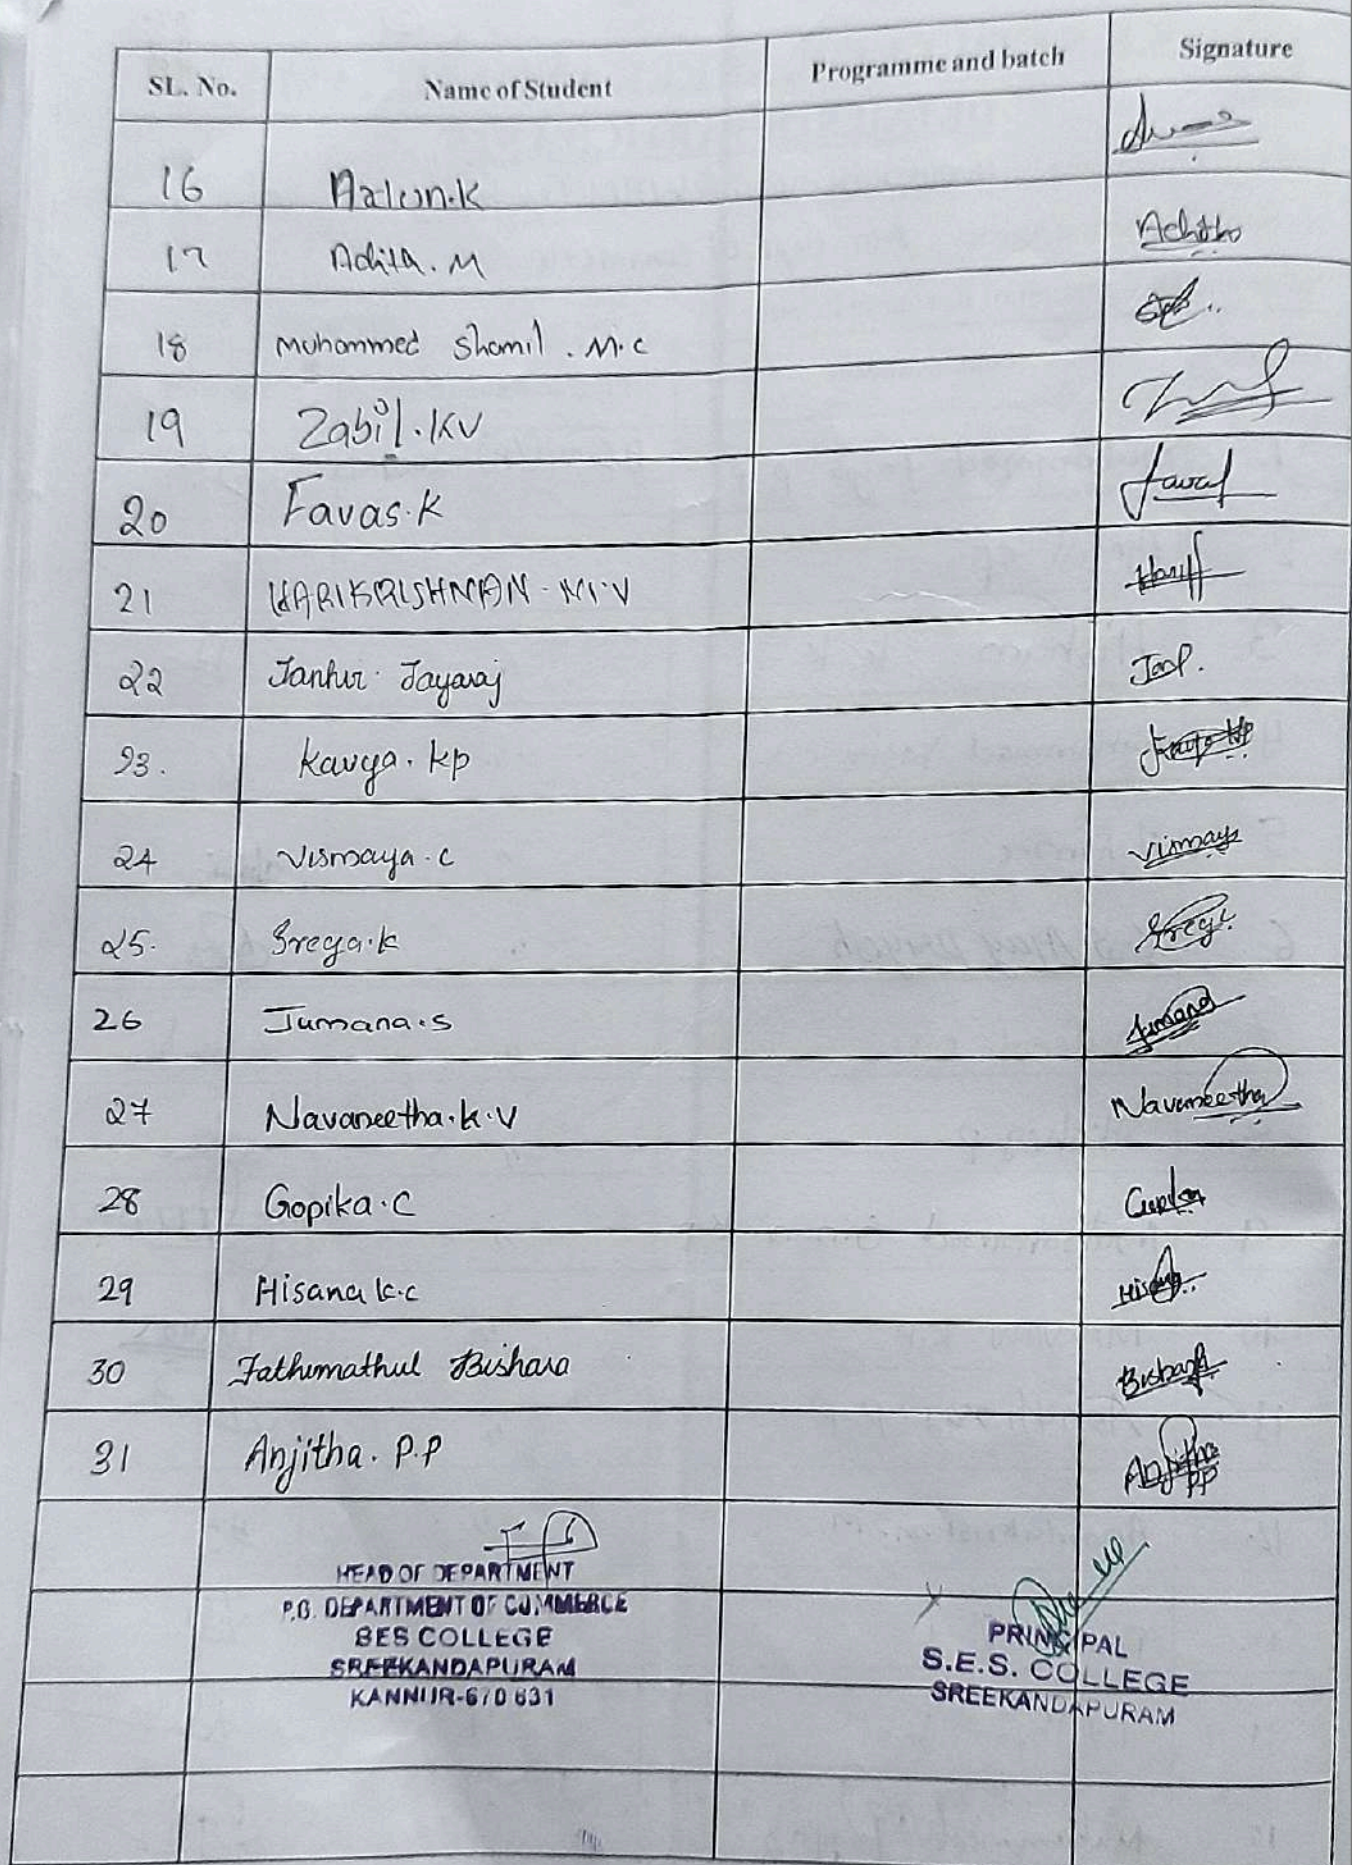 SL. No. Name of Student Programme and batch Signature
16
17 M Achitha
18 Mohammed Shamil . M.C
19 Zabil.KV
20 Favas.K Favas
21 HARIKRISHNAN - M.V
22 Jayaraj
23. Kavya. kp Kavya kp
24 Vismaya.C Vismaya
25. Sreya.k
26 Jumana.S Jumana
27 Navaneetha.k.V Navaneetha
28 Gopika.C Gopika
29 Hisana k.c Hisana
30 Fathimathul Bishara Bishara
31 Anjitha. P.P Anjitha PP
HEAD OF DEPARTMENT
P.G. DEPARTMENT OF COMMERCE
SES COLLEGE
SREEKANDAPURAM
KANNUR-670 631
PRINCIPAL
S.E.S. COLLEGE
SREEKANDAPURAM